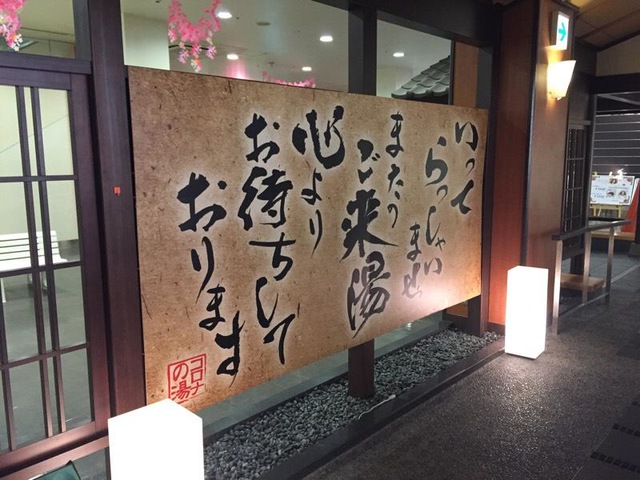 いって
らっしゃい
ませ
またの
ご来湯
心より
お待ちして
おります
コロナ
の湯